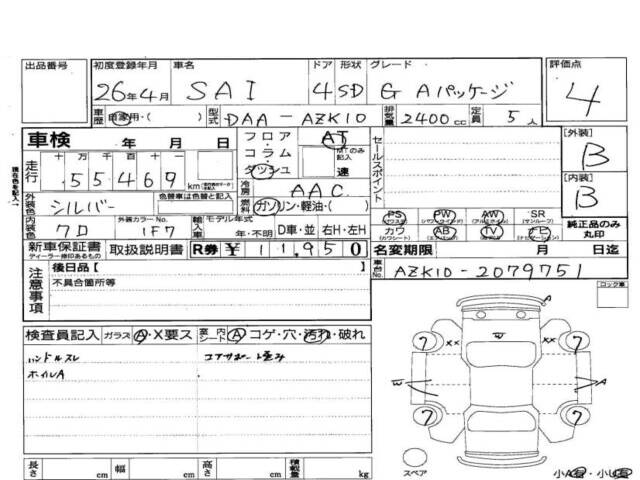 出品番号 初度登録年月 車名 ドア 形状 グレード 評価点
26年4月 SAI 4 SD G Aパッケージ 4
車歴 自家用・( ) 型式 DAA-AZK10 排気量 2400cc 定員 5人
車検 年 月 日 フロア AT 【外装】
コラム MTのみ記入 セールスポイント B
走行 十 万 千 百 十 ダッシュ 速
55469 km 冷房 AAC 【内装】
外装色 シルバー 色替車は色替と記入 燃料 ガソリン・軽油・( ) B
PS PW AW SR
内装色 7D 外装カラーNo. 1F7 輸入車 モデル年式 年・不明 D車・並 右H・左H カワ AB TV ナビ 純正品のみ丸印
新車保証書 取扱説明書 R券 ¥11,950 名変期限 月 日迄
ディーラー捺印あるもの
車台No. AZK10-2079751
注意事項 後日品【 】 ロック車
不具合箇所等
検査員記入 ガラス A・X要ス 室内 シート A コゲ・穴・汚れ・破れ
ハンドルスレ
ホイルA
A
W
xx xx
7 7
W A
7 7
スペア
小A有・小U有
長さ cm 幅 cm 高さ cm 積載量 kg
現在色を記入